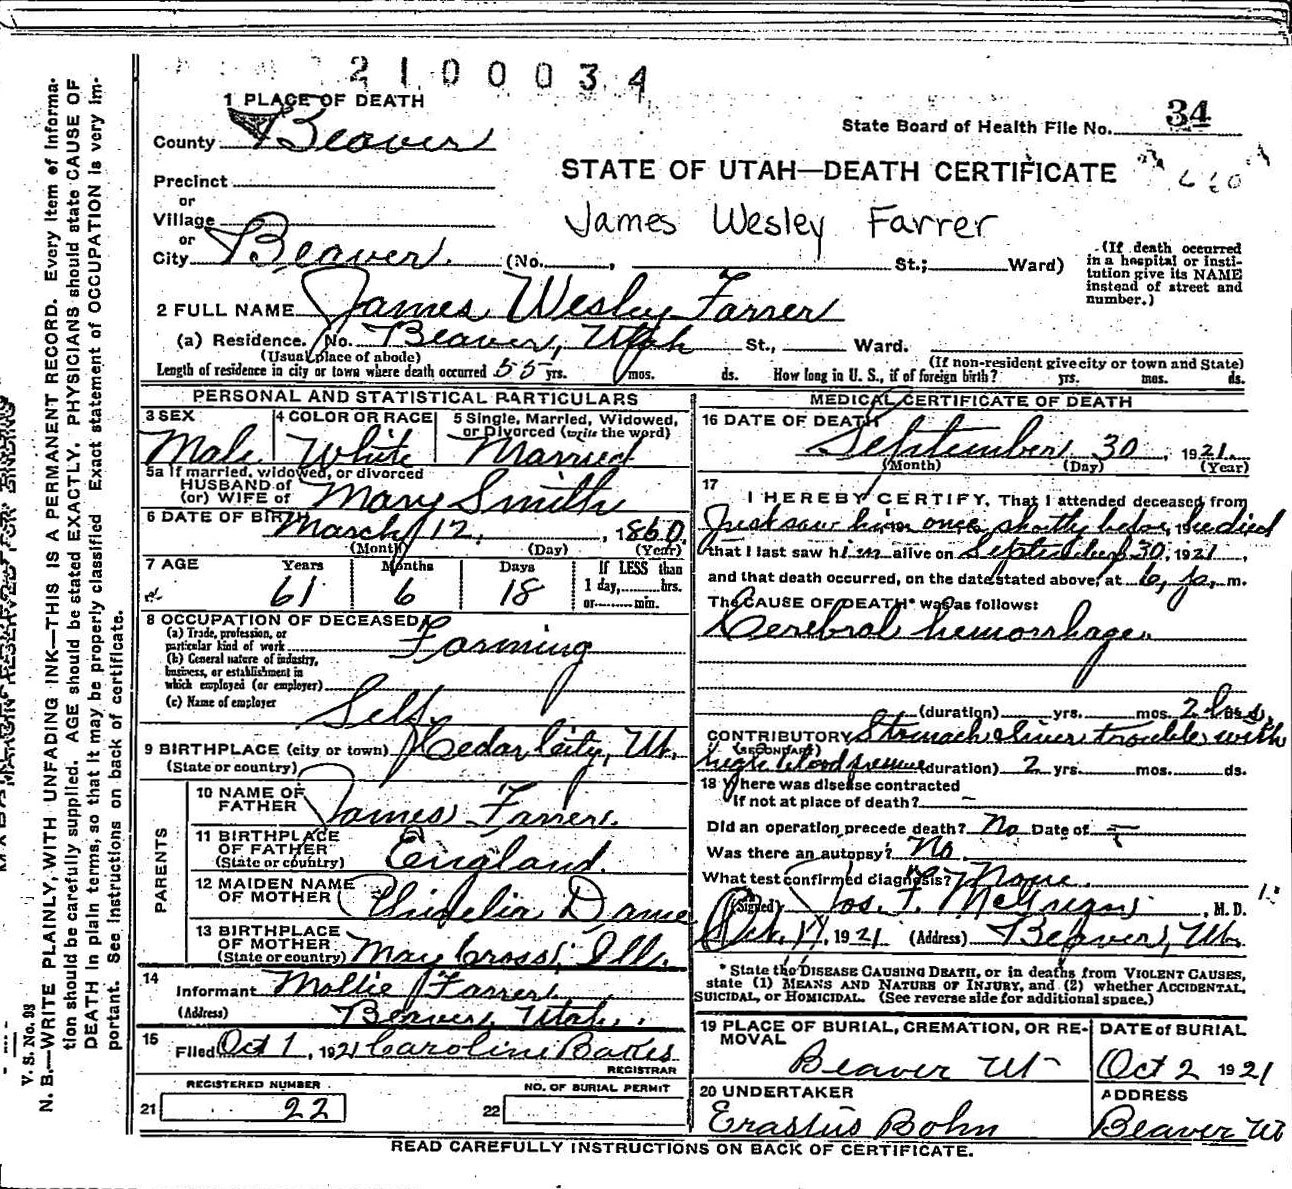 2100034
1 PLACE OF DEATH
34
State Board of Health File No.
County Beaver
STATE OF UTAH—DEATH CERTIFICATE
Precinct
or
Village
James Wesley Farrer
or
City Beaver (No. , St.; Ward)
(If death occurred in a hospital or institution give its NAME instead of street and number.)
2 FULL NAME James Wesley Farrer
(a) Residence. No. Beaver, Utah St., Ward.
(Usual place of abode) (If non-resident give city or town and State)
Length of residence in city or town where death occurred 55 yrs. mos. ds. How long in U. S., if of foreign birth? yrs. mos. ds.
PERSONAL AND STATISTICAL PARTICULARS
3 SEX Male
4 COLOR OR RACE White
5 Single, Married, Widowed, or Divorced (write the word) Married
5a If married, widowed, or divorced
HUSBAND of
(or) WIFE of Mary Smith
6 DATE OF BIRTH March 12, 1860
(Month) (Day) (Year)
7 AGE Years Months Days If LESS than
61 6 18 1 day, hrs.
or min.
8 OCCUPATION OF DECEASED
(a) Trade, profession, or particular kind of work Farming
(b) General nature of industry, business, or establishment in which employed (or employer)
(c) Name of employer Self
9 BIRTHPLACE (city or town) Cedar City, Ut.
(State or country)
PARENTS
10 NAME OF FATHER James Farrer
11 BIRTHPLACE OF FATHER (State or country) England
12 MAIDEN NAME OF MOTHER
13 BIRTHPLACE OF MOTHER (State or country) Ills.
14 Informant Mollie Farrer
(Address) Beaver, Utah.
15 Filed Oct 1, 1921 Caroline
REGISTRAR
REGISTERED NUMBER
21 22
NO. OF BURIAL PERMIT
22
MEDICAL CERTIFICATE OF DEATH
16 DATE OF DEATH
September 30, 1921
(Month) (Day) (Year)
17
I HEREBY CERTIFY, That I attended deceased from
Just saw him once shortly before he died
that I last saw him alive on September 30, 1921,
and that death occurred, on the date stated above, at 6, p. m.
The CAUSE OF DEATH* was as follows:
Cerebral hemorrhage.
(duration) yrs. mos. 2 hrs.
CONTRIBUTORY Stomach & liver trouble with
(SECONDARY)
high blood pressure (duration) 2 yrs. mos. ds.
18 Where was disease contracted
if not at place of death? –
Did an operation precede death? No Date of –
Was there an autopsy? No
What test confirmed diagnosis? None.
(Signed) Jos. F. McGregor, M. D.
Oct. 1921 (Address) Beaver, Ut.
* State the DISEASE CAUSING DEATH, or in deaths from VIOLENT CAUSES,
state (1) MEANS AND NATURE OF INJURY, and (2) whether ACCIDENTAL,
SUICIDAL, or HOMICIDAL. (See reverse side for additional space.)
19 PLACE OF BURIAL, CREMATION, OR REMOVAL
Beaver Ut
DATE of BURIAL
Oct 2 1921
20 UNDERTAKER
Erastus Bohn
ADDRESS
Beaver Ut
READ CAREFULLY INSTRUCTIONS ON BACK OF CERTIFICATE.
V. S. No. 98
N. B.—WRITE PLAINLY, WITH UNFADING INK—THIS IS A PERMANENT RECORD. Every item of informa-
tion should be carefully supplied. AGE should be stated EXACTLY. PHYSICIANS should state CAUSE OF
DEATH in plain terms, so that it may be properly classified. Exact statement of OCCUPATION is very im-
portant. See instructions on back of certificate.
MARGIN RESERVED FOR BINDING